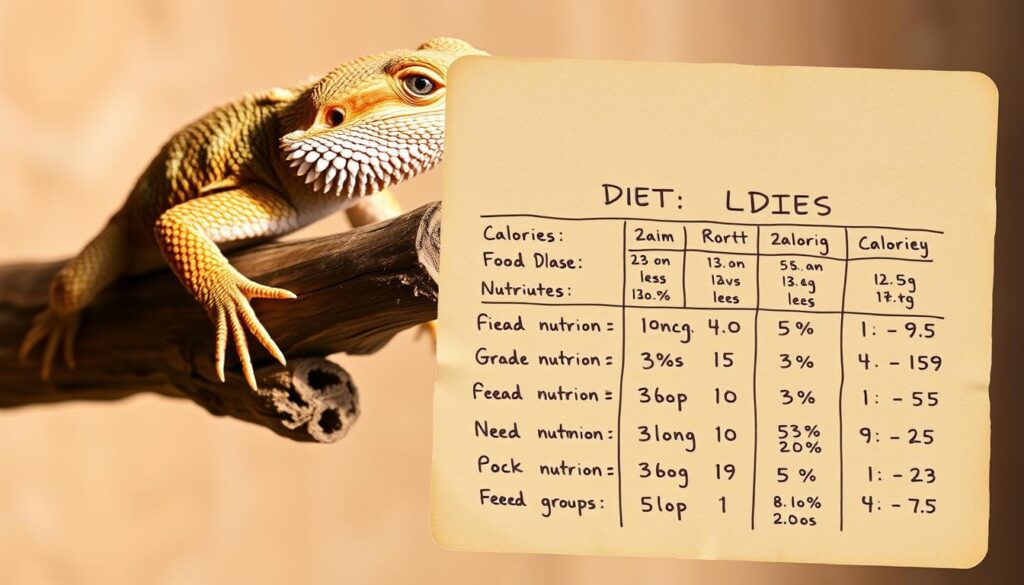 DIET: LDIES
Calories: 2aim Rortt 2alorig Caloriey
Food Dlase: 23 on 13.on 5s..an 12.5g
less 12vs 13.eg 17.tg
Nutriutes: 130.% lees lees
Fiead nutrion = 10ncg. 4.0 5% 1: - 9.5
Grade nutrion = 3%s 15 3% 4. - 159
Feead nutrion = 36op 10 3% 1: - 55
Need nutmion: 3long 10 53% 9: - 25
20%
Pock nutrion = 36og 19 5% 1: - 23
Feeed groups: 5lop 1 8.10% 4: - 7.5
2.0os